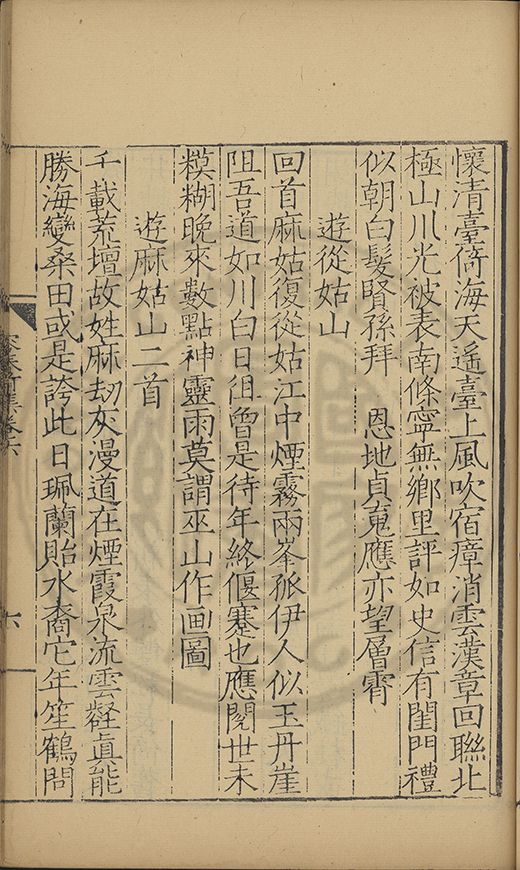 懷清臺倚海天遙臺上風吹宿瘴消雲漢章回聯北
極山川光被表南條寧無鄉里評如史信有閨門禮
似朝白髮賢孫拜　恩地貞䰟應亦望層霄
遊從姑山
回首麻姑復從姑江中煙霧兩峯孤伊人似玉丹崖
阻吾道如川白日徂曾是待年終偃蹇也應閱世未
糢糊晚來數點神靈雨莫謂巫山作画圖
遊麻姑山二首
千載荒壇故姓麻劫灰漫道在煙霞泉流雲壑眞能
勝海變桑田或是誇此日珮蘭貽水裔它年笙鶴問
卷六
六